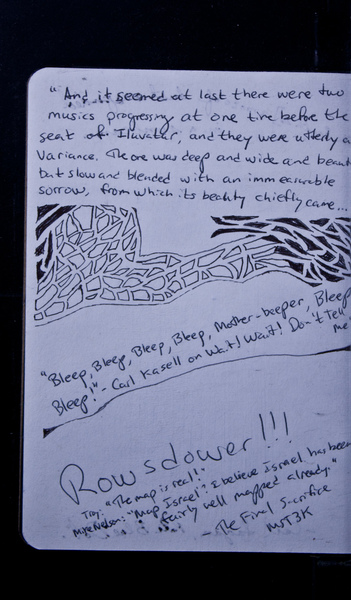 "And it seemed at last there were two
musics progressing at one time before the
seat of Iluvatar, and they were utterly a
Variance. The one was deep and wide and beaut
but slow and blended with an immeasurable
sorrow, from which its beauty chiefly came...
"Bleep, Bleep, Bleep, Bleep, Mother-beeper, Bleep
Bleep!" - Carl Kasell on Wait! Wait! Don't Tell
me
Rowsdower!!!
Troy: "The map is real!"
Mike Nelson: "Map Israel? I believe Israel has been
fairly well mapped already."
- The Final Sacrifice
MST3K